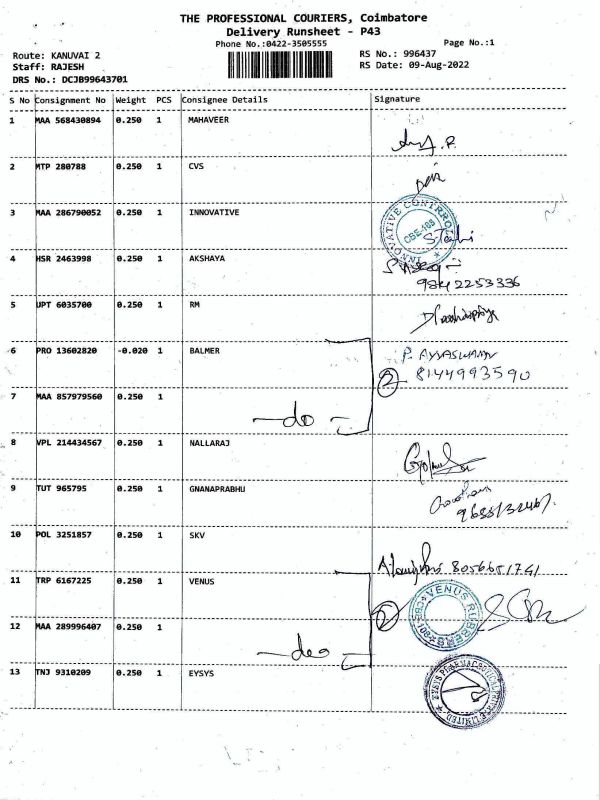 THE PROFESSIONAL COURIERS, Coimbatore
Delivery Runsheet - P43
Phone No.:0422-3505555
Page No.:1
Route: KANUVAI 2
RS No.: 996437
Staff: RAJESH
RS Date: 09-Aug-2022
DRS No.: DCJB99643701
S No Consignment No Weight PCS Consignee Details Signature
1 MAA 568430894 0.250 1 MAHAVEER
2 MTP 280788 0.250 1 CVS
3 MAA 286790052 0.250 1 INNOVATIVE
INNOVATIVE CONTROL
CBE-108
4 HSR 2463998 0.250 1 AKSHAYA
9842253336
5 UPT 6035700 0.250 1 RM
6 PRO 13602820 -0.020 1 BALMER
P. AYYASWAMY
2 8144993590
7 MAA 857979560 0.250 1
-do-
8 VPL 214434567 0.250 1 NALLARAJ
9 TUT 965795 0.250 1 GNANAPRABHU
10 POL 3251857 0.250 1 SKV
8056651741
11 TRP 6167225 0.250 1 VENUS
2
VENUS RUBBERS
12 MAA 289996407 0.250 1
13 TNJ 9310209 0.250 1 EYSYS
EYSYS PHARMACEUTICAL PRIVATE LIMITED